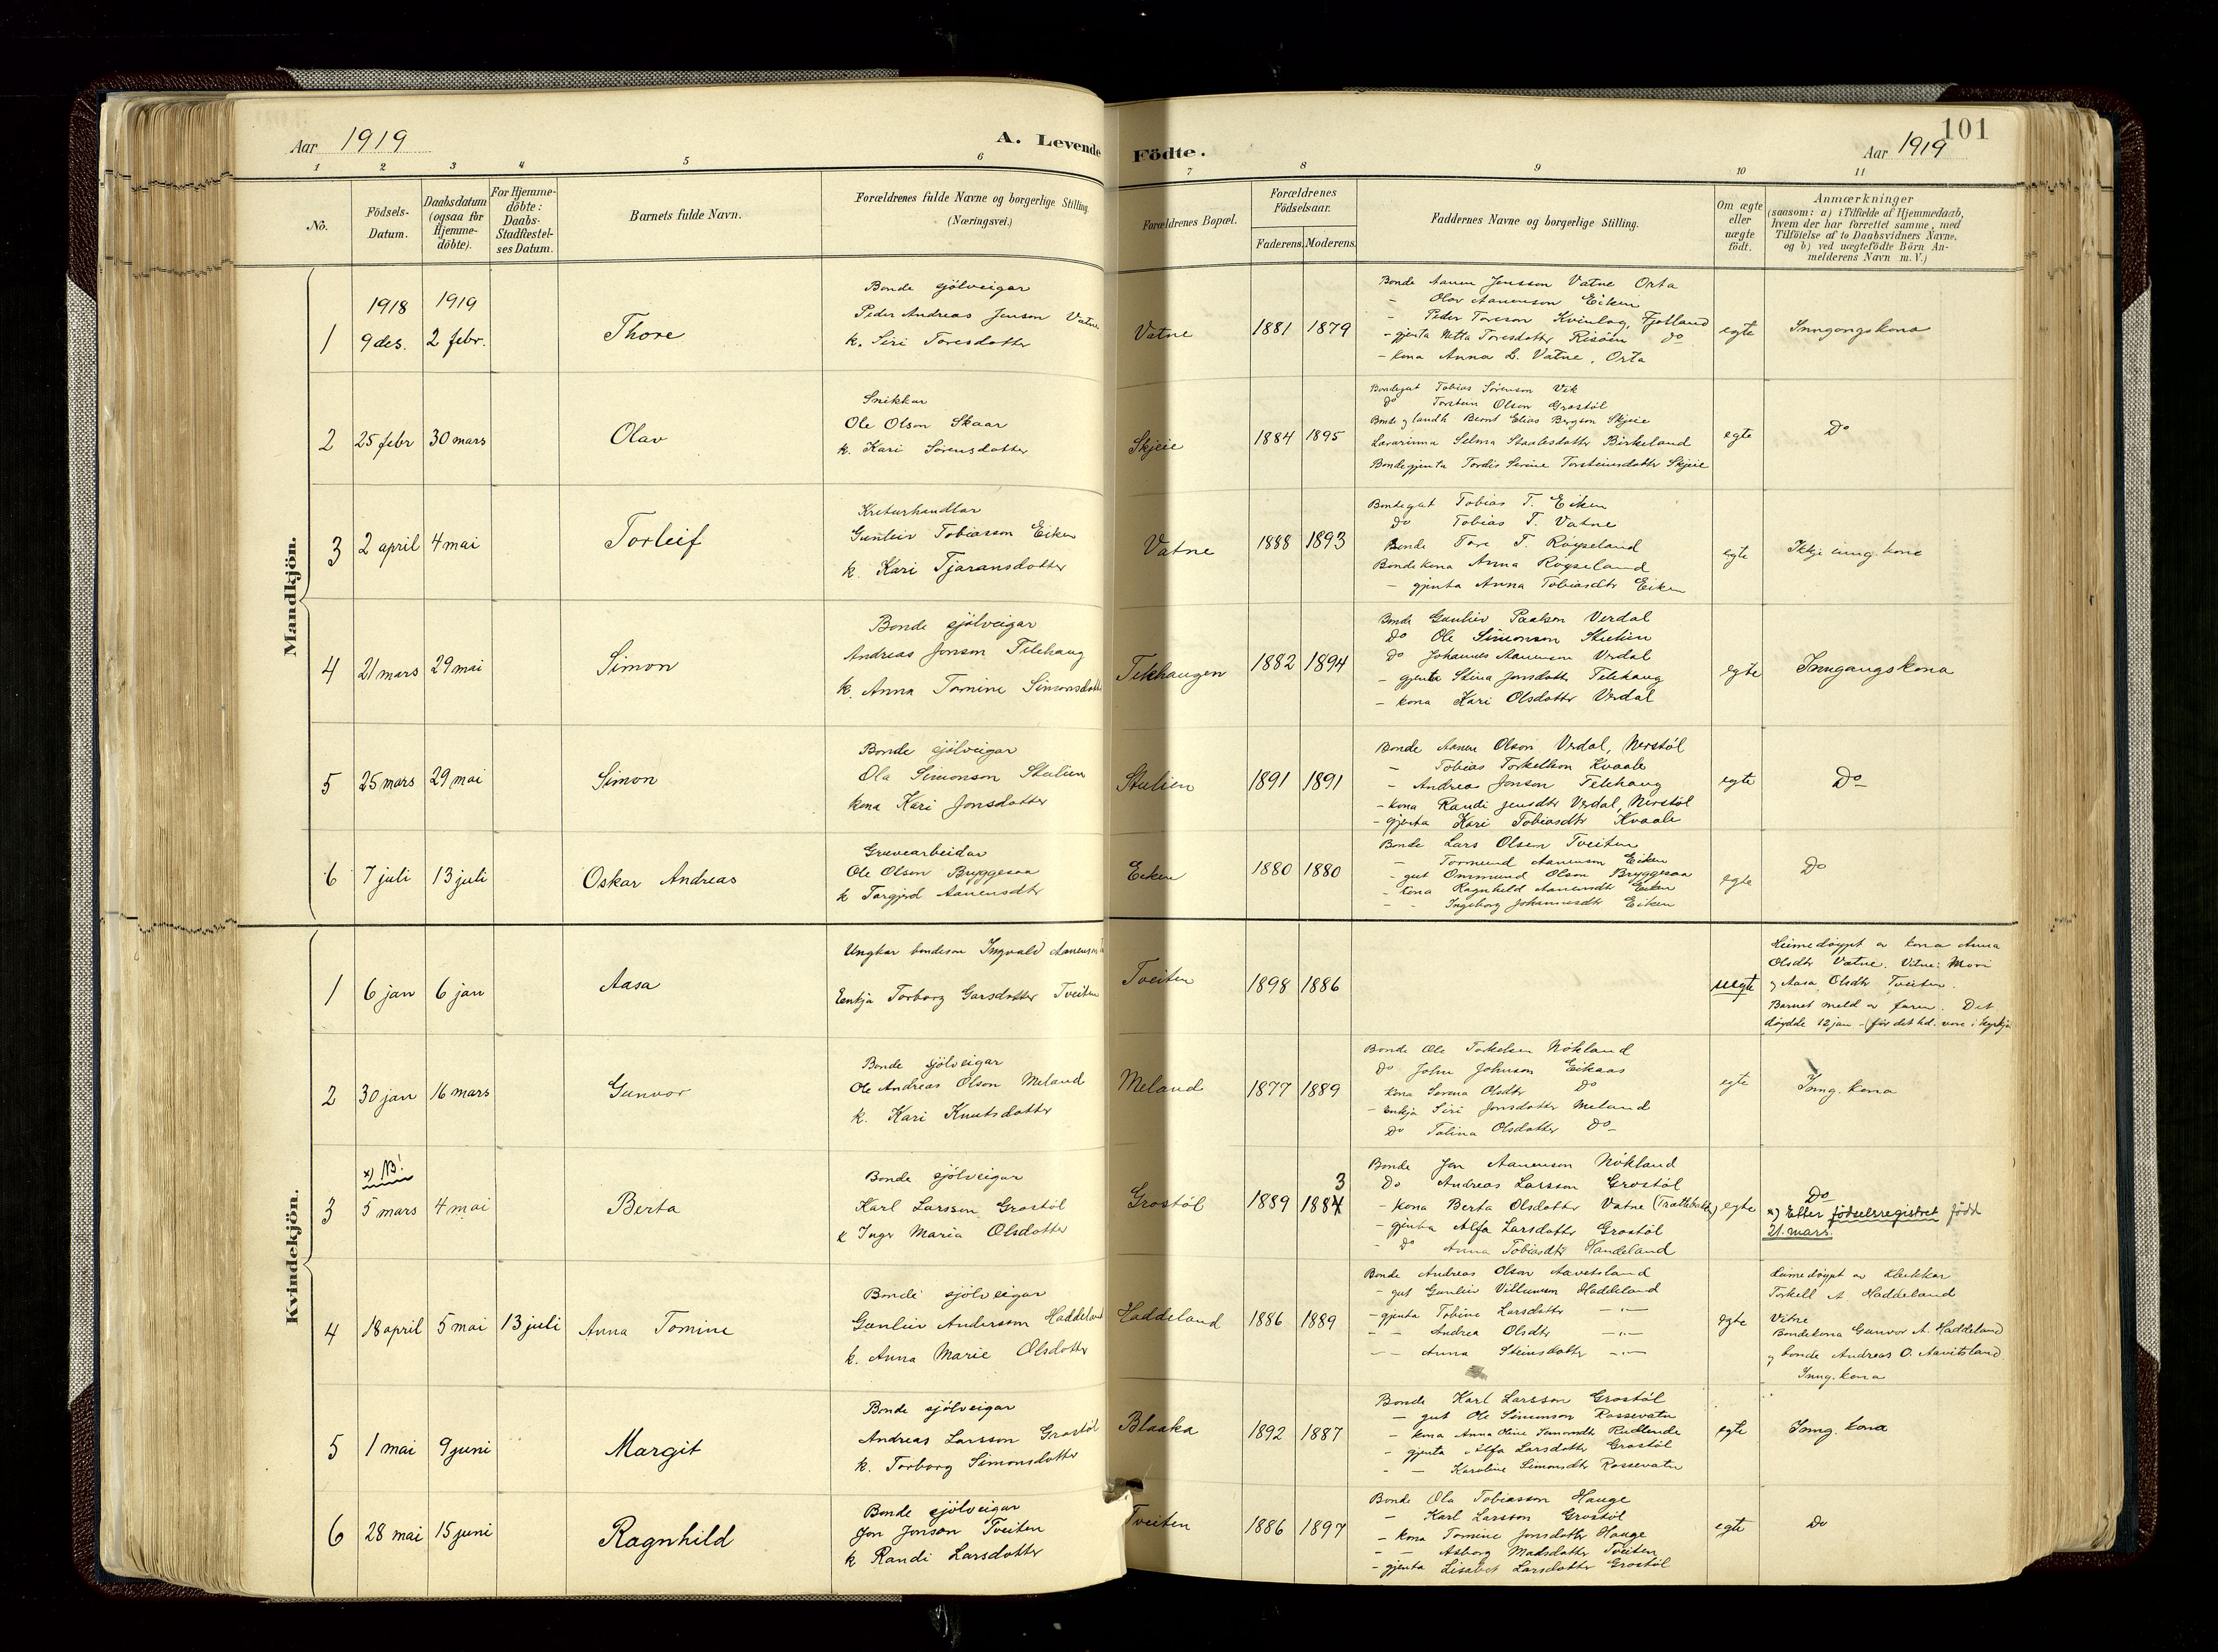 Aar 1919
A. Levende Födte.
101
Aar 1919
1 2 3 4 5 6 7 8 9 10 11
No.
Födsels-Datum.
Daabsdatum (ogsaa for Hjemme-döbte).
For Hjemme-döbte: Daabs-Stadfæstel-ses Datum.
Barnets fulde Navn.
Forældrenes fulde Navne og borgerlige Stilling (Næringsvei.)
Forældrenes Bopæl.
Forældrenes Födselsaar.
Faderens. Moderens.
Faddernes Navne og borgerlige Stilling.
Om ægte eller uægte födt.
Anmærkninger
(saasom: a) i Tilfælde af Hjemmedaab,
hvem der har forrettet samme, med
Tilföielse af to Daabsvidners Navne,
og b) ved uægtefödte Börn An-
melderens Navn m. V.)
Mandkjön.
1
1918 9 des.
1919 2 febr.
Thore
Bonde sjölveigar
Peder Andreas Jenson Vatne
k. Siri Toresdotter
Vatne
1881 1879
Bonde Aanen Jensson Vatne Orta
- Olav Aanenson Eiken
- Peder Toreson Kvinlog, Fjotland
- gjenta Netta Toresdotter Risöin do
- kona Anna L. Vatne, Orta
egte
Inngongskona
2
25 febr
30 mars
Olav
Snikkar
Ole Olson Skaar
k. Kari Sörensdotter
Skjeie
1884 1895
Bondegut Tobias Sörenson Vik
Do Torstein Olson Grostöl
Bonde og landh Bernt Elias Bergson Skjeie
Lærarinna Selma Staalesdotter Birkeland
Bondegjenta Tordis Serine Torsteinsdotter Skjeie
egte
Do
3
2 april
4 mai
Torleif
Kreturhandlar
Gunleiv Tobiasson Eiken
k. Kari Tjaransdotter
Vatne
1888 1893
Bondegut Tobias T. Eiken
Do Tobias T. Vatne
Bonde Tore T. Röyseland
Bondekona Anna Röyseland
- gjenta Anna Tobiasdtr Eiken
egte
Ikkje inng. kone
4
21 mars
29 mai
Simon
Bonde sjölveigar
Andreas Jonson Tilehaug
k. Anna Tomine Simonsdotter
Tekhaugen
1882 1894
Bonde Gunleiv Paalson Verdal
Do Ole Simonson Stulien
Do Johannes Aanenson Verdal
- gjenta Stina Jonsdotter Tilehaug
- kona Kari Olsdotter Verdal
egte
Inngangskona
5
25 mars
29 mai
Simon
Bonde sjölveigar
Ola Simonson Stulien
kona Kari Jonsdotter
Stulien
1891 1891
Bonde Aanen Olson Verdal, Nerstöl
- Tobias Torkelson Kvaale
- Andreas Jonson Tilehaug
- kona Randi Jensdtr Verdal, Nerstöl
- gjenta Kari Tobiasdtr Kvaale
egte
Do
6
7 juli
13 juli
Oskar Andreas
Gruvearbeidar
Ole Olson Bryggesaa
k Targjerd Aanensdtr
Eiken
1880 1880
Bonde Lars Olsen Tveiten
- Tormund Aanenson Eiken
- gut Ommund Olson Bryggesaa
- kona Ragnhild Aanensdtr Eiken
- - Ingeborg Johannesdtr Eiken
egte
Do
Kvindekjön.
1
6 jan
6 jan
Aasa
Ungkar bondeson Ingvald Aanenson
Enkja Torborg Garsdotter Tveiten
Tveiten
1898 1886
uegte
Heimedöypt av kona Anna
Olsdtr Vatne. Vitne: Mori
og Aasa Olsdtr Tveiten.
Barnet meld av faren. Det
döydde 12 jan - (för det hd. vore i kyrkja
2
30 jan
16 mars
Gunvor
Bonde sjölveigar
Ole Andreas Olson Meland
k. Kari Knutsdotter
Meland
1877 1889
Bonde Ole Torkelsen Nökland
Do John Johnson Eikaas
kona Serena Olsdtr Do
- Enkja Siri Jonsdotter Meland
Do Tolina Olsdotter Do
egte
Inng. kona
3
x) NB!
5 mars
4 mai
Berta
Bonde sjölveigar
Karl Larsson Grostöl
k Inger Maria Olsdotter
Grostöl
1889 1884 3
Bonde Jon Aanenson Nökland
Do Andreas Larsson Grostöl
- kona Berta Olsdotter Vatne
- gjenta Alfa Larsdotter Grostöl
- Do Anna Tobiasdtr Handeland
egte
Do
x) Etter födselsregistret född
21. mars.
4
18 april
5 mai
13 juli
Anna Tomine
Bonde sjölveigar
Gunleiv Anderson Haddeland
k. Anna Marie Olsdotter
Haddeland
1886 1889
Bonde Andreas Olson Aavitsland
- gut Gunleiv Villumson Haddeland
- gjenta Tobine Larsdotter -"-
- - Andrea Olsdtr -"-
- - Anna Steinsdotter -"-
egte
Heimedöypt av Klokkar
Torkell A Haddeland
Vitne
Bondekona Gunvor A. Haddeland
og bonde Andreas O. Aavitsland
Inng. kona
5
1 mai
9 juni
Margit
Bonde sjölveigar
Andreas Larsson Grostöl
k. Torborg Simonsdotter
Blaaka
1892 1887
Bonde Karl Larsson Grostöl
- gut Ole Simonson Rossevatn
- kona Anna Oline Simonsdtr Rudlende
- gjenta Alfa Larsdotter Grostöl
- - Karoline Simonsdtr Rossevatn
egte
Inng. kona
6
28 mai
15 juni
Ragnhild
Bonde sjölveigar
Jon Jonson Tveiten
k Randi Larsdotter
Tveiten
1886 1897
Bonde Ola Tobiasson Hauge
- Karl Larsson Grostöl
- kona Tomine Jonsdotter Hauge
- - Asborg Madsdotter Tveiten
- gjenta Lisabet Larsdotter Grostöl
egte
Do